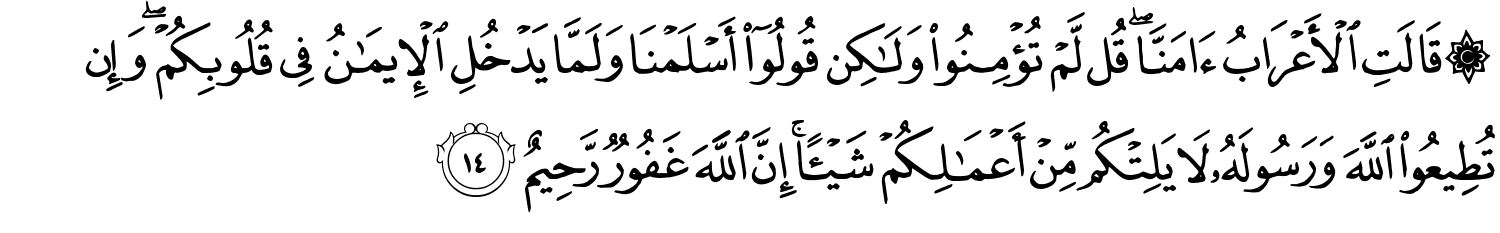 ۞ قَالَتِ ٱلْأَعْرَابُ ءَامَنَّا ۖ قُل لَّمْ تُؤْمِنُوا۟ وَلَـٰكِن قُولُوٓا۟ أَسْلَمْنَا وَلَمَّا يَدْخُلِ ٱلْإِيمَـٰنُ فِى قُلُوبِكُمْ ۖ وَإِن
تُطِيعُوا۟ ٱللَّهَ وَرَسُولَهُۥ لَا يَلِتْكُم مِّنْ أَعْمَـٰلِكُمْ شَيْـًٔا ۚ إِنَّ ٱللَّهَ غَفُورٌۭ رَّحِيمٌ ١٤